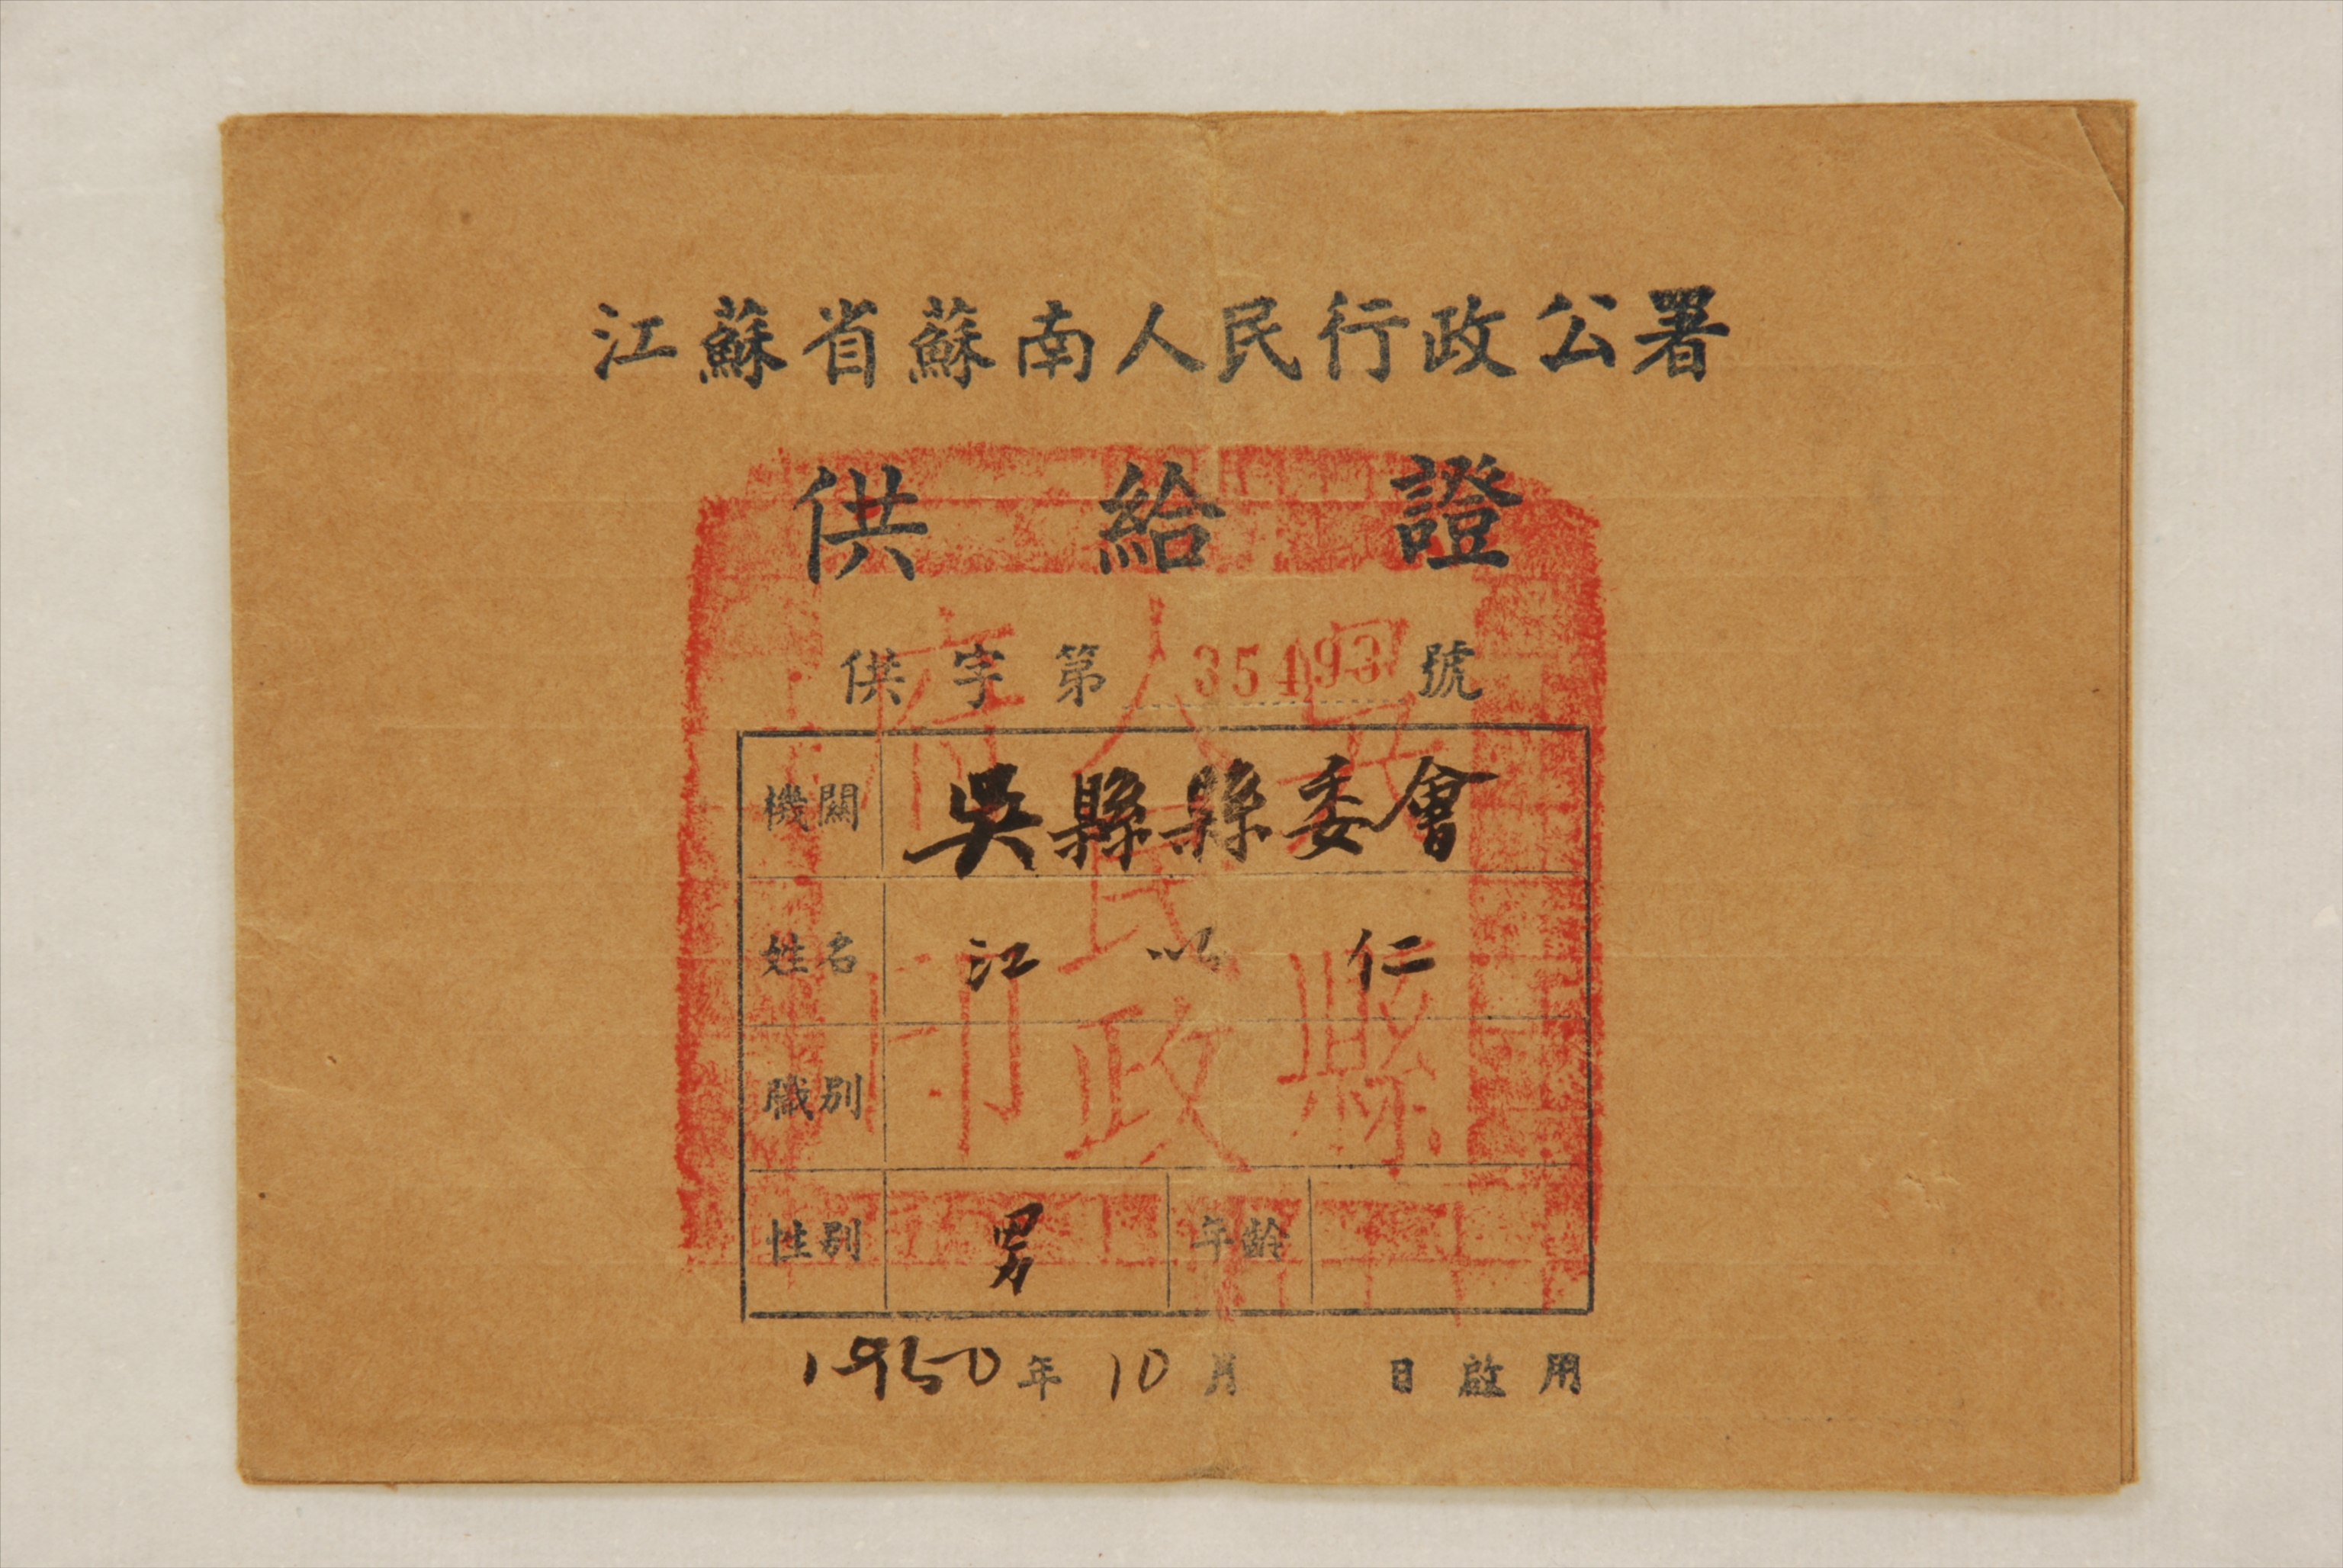 江蘇省蘇南人民行政公署
供給證
供字第35493號
機關 吳縣縣委會
姓名 江以仁
職別
性別 男 年齡
1950年10月 日啟用
人民政府